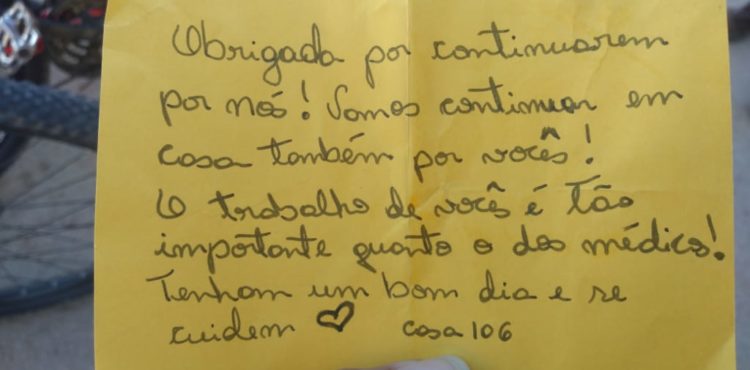 Obrigada por continuarem
por nós! Vamos continuar em
casa também por vocês!
O trabalho de vocês é tão
importante quanto o dos médicos!
Tenham um bom dia e se
cuidem ♡ casa 106